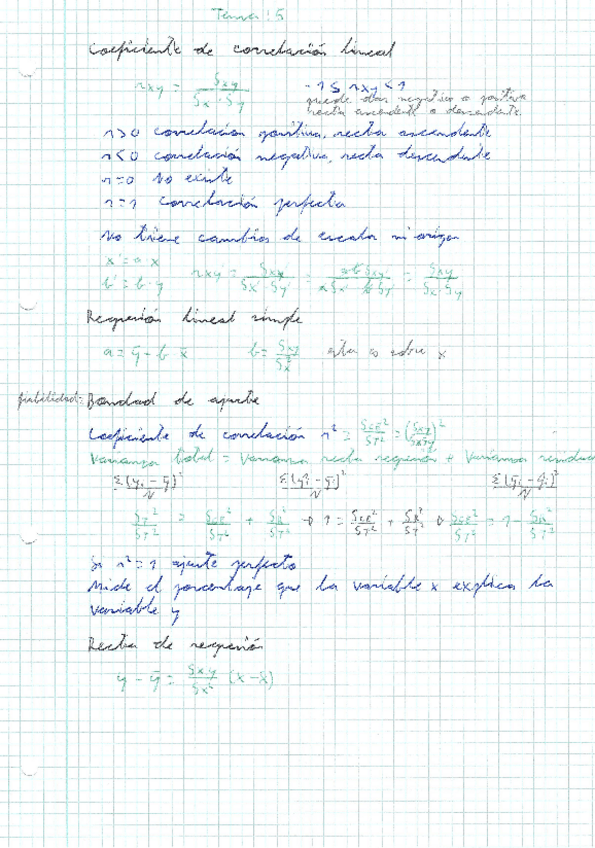 Tema: 5
Coeficiente de correlación lineal
rxy = Sxy / Sx · Sy
-1 ≤ rxy < 1
puede dar negativo o positivo
recta ascendente o descendente.
r>0 correlación positiva, recta ascendente
r<0 correlación negativa, recta descendente
r=0 No existe
r=1 correlación perfecta
No tiene cambios de escala ni origen
x' = a · x
b' = b · y
rxy = Sxy / Sx' · Sy' = ab Sxy / a Sx · b Sy = Sxy / Sx · Sy
Regresión lineal simple
a = ȳ - b x̄ b = Sxy / Sx² sobre x
fiabilidad = Bondad de ajuste
Coeficiente de correlación r² = Sce² / ST² = (Sxy / SxSy)²
Varianza total = Varianza recta regresión + Varianza
Σ(yi - ȳ)² / N
ST² / ST² = Sce² / ST² + SR² / ST² → 1 = Sce² / ST² + SR² / ST² → Sce² / ST² = 1 - SR² / ST²
Si r² = 1 ajuste perfecto
Mide el porcentaje que la variable x explica la
variable y
Recta de regresión
y - ȳ = Sxy / Sx² (x - x̄)